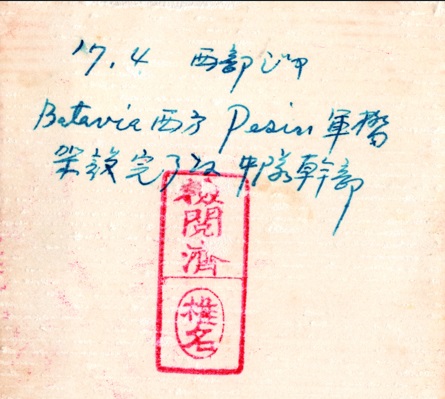 '17.4 西部
Batavia 西方 Pesin 軍橋
架設完了後 中隊幹部
檢
閲
濟
椎
名